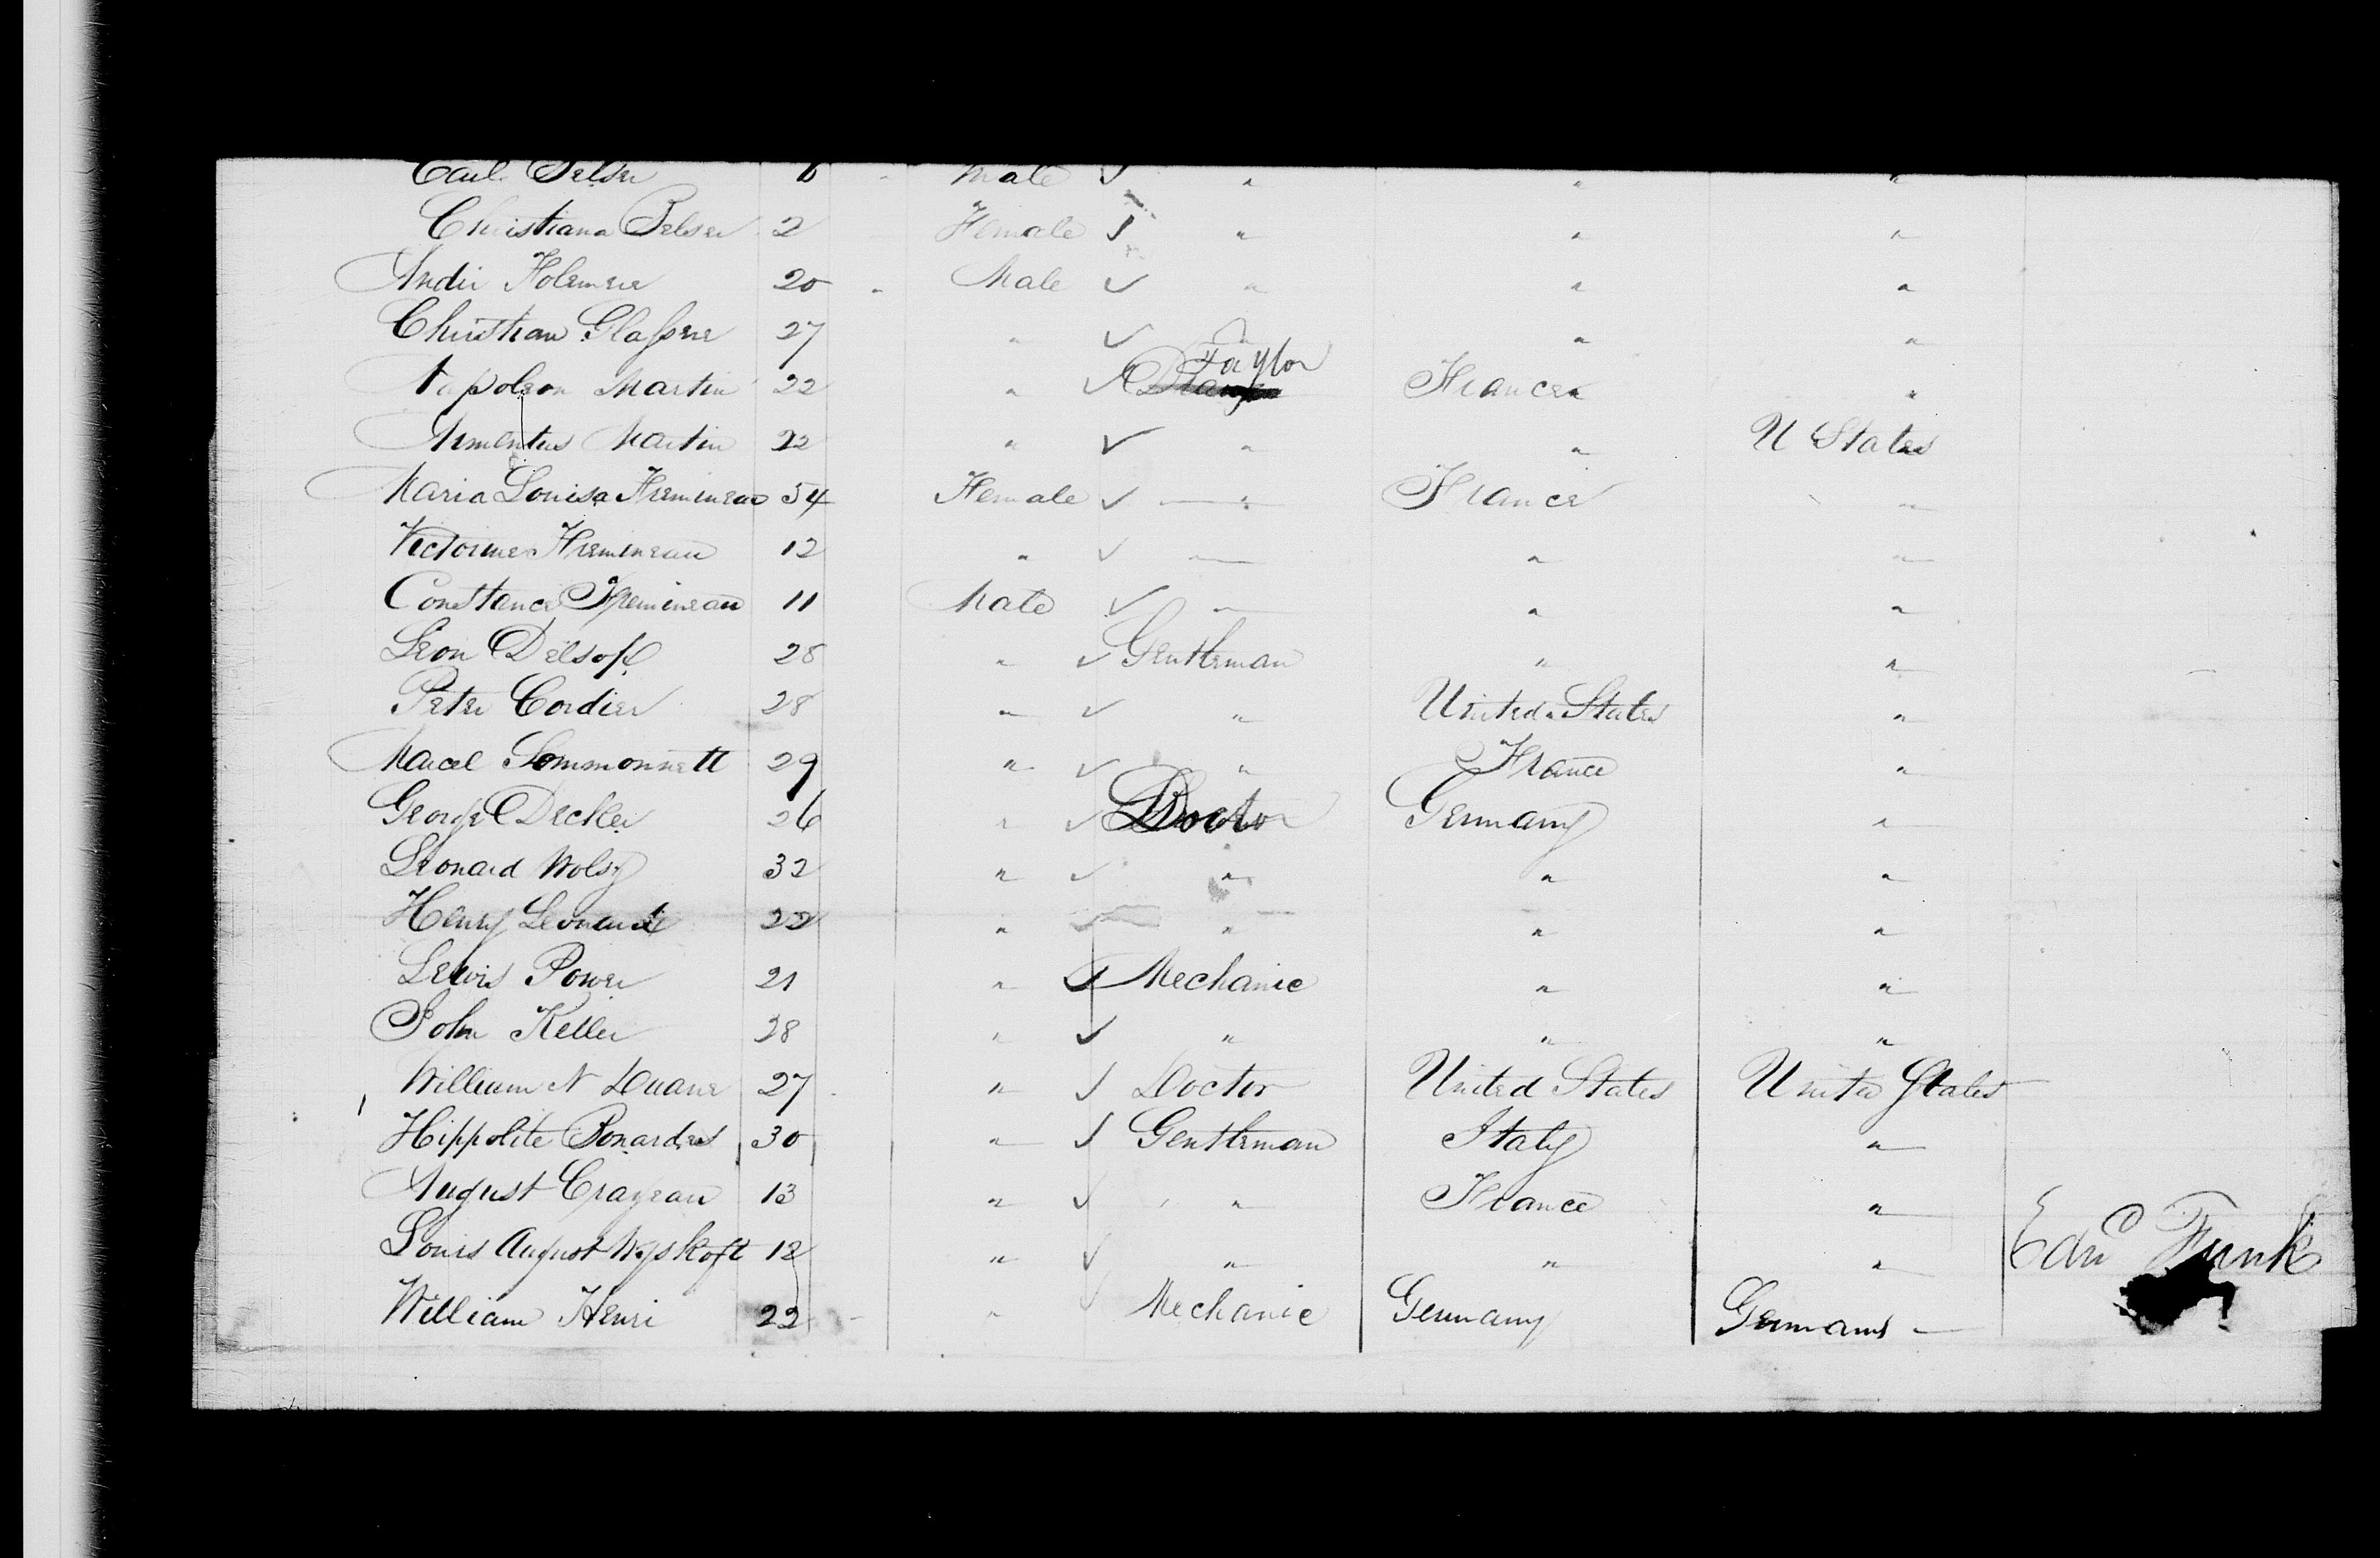 Carl Belser 6 Male ✓ " " "
Christiana Belser 2 Female ✓ " " "
Andir Holemeie 20 Male ✓ " " "
Christian 27 " ✓ " " "
Napoleon Martin 22 " ✓ Taylor France "
Armentus Martin 22 " ✓ " " U States
Maria Louisa Fremineau 54 Female ✓ — " France "
Victorine Fremineau 12 " ✓ — " "
Constance Fremineau 11 Male ✓ — " "
Leon 28 " ✓ Gentleman " "
Peter Cordier 28 " ✓ " United States "
Marcel Sommonnett 29 " ✓ " France "
George Decker 26 " ✓ Doctor Germany "
Leonard Wolsy 32 " ✓ " " "
Henry Leonard 22 " ✓ " " "
Lewis Power 21 " ✓ Mechanic " "
John Keller 28 " ✓ " " "
William N Duane 27 " ✓ Doctor United States United States
Hippolite 30 " ✓ Gentleman Italy "
August 13 " ✓ " France "
Louis August 12 " ✓ " " " Edw Funk
William Henri 22 " ✓ Mechanic Germany Germany